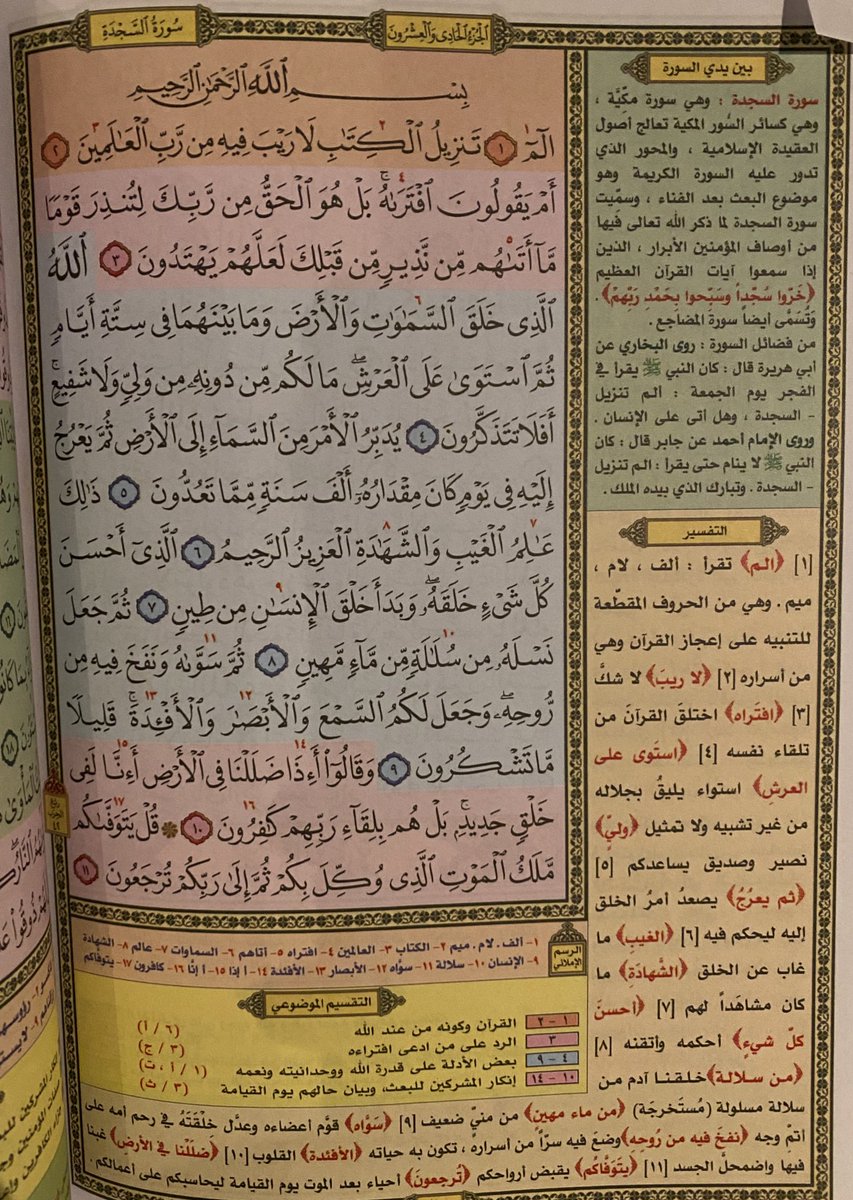 سُورَةُ السَّجْدَةِ
الجُزْءُ الحَادِي وَالعِشْرُونَ
بِسْمِ اللَّهِ الرَّحْمَٰنِ الرَّحِيمِ
الٓمٓ ١ تَنزِيلُ الْكِتَٰبِ لَا رَيْبَ فِيهِ مِن رَّبِّ الْعَٰلَمِينَ ٢
أَمْ يَقُولُونَ افْتَرَىٰهُ ۚ بَلْ هُوَ الْحَقُّ مِن رَّبِّكَ لِتُنذِرَ قَوْمًا
مَّآ أَتَىٰهُم مِّن نَّذِيرٍ مِّن قَبْلِكَ لَعَلَّهُمْ يَهْتَدُونَ ٣ اللَّهُ
الَّذِي خَلَقَ السَّمَٰوَٰتِ وَالْأَرْضَ وَمَا بَيْنَهُمَا فِي سِتَّةِ أَيَّامٍ
ثُمَّ اسْتَوَىٰ عَلَى الْعَرْشِ ۖ مَا لَكُم مِّن دُونِهِ مِن وَلِيٍّ وَلَا شَفِيعٍ ۚ
أَفَلَا تَتَذَكَّرُونَ ٤ يُدَبِّرُ الْأَمْرَ مِنَ السَّمَآءِ إِلَى الْأَرْضِ ثُمَّ يَعْرُجُ
إِلَيْهِ فِي يَوْمٍ كَانَ مِقْدَارُهُۥٓ أَلْفَ سَنَةٍ مِّمَّا تَعُدُّونَ ٥ ذَٰلِكَ
عَٰلِمُ الْغَيْبِ وَالشَّهَٰدَةِ الْعَزِيزُ الرَّحِيمُ ٦ الَّذِيٓ أَحْسَنَ
كُلَّ شَيْءٍ خَلَقَهُۥ ۖ وَبَدَأَ خَلْقَ الْإِنسَٰنِ مِن طِينٍ ٧ ثُمَّ جَعَلَ
نَسْلَهُۥ مِن سُلَٰلَةٍ مِّن مَّآءٍ مَّهِينٍ ٨ ثُمَّ سَوَّىٰهُ وَنَفَخَ فِيهِ مِن
رُّوحِهِ ۖ وَجَعَلَ لَكُمُ السَّمْعَ وَالْأَبْصَٰرَ وَالْأَفْـِٔدَةَ ۚ قَلِيلًا
مَّا تَشْكُرُونَ ٩ وَقَالُوٓا أَءِذَا ضَلَلْنَا فِي الْأَرْضِ أَءِنَّا لَفِي
خَلْقٍ جَدِيدٍ ۚ بَلْ هُم بِلِقَآءِ رَبِّهِمْ كَٰفِرُونَ ١٠ ۞ قُلْ يَتَوَفَّىٰكُم
مَّلَكُ الْمَوْتِ الَّذِي وُكِّلَ بِكُمْ ثُمَّ إِلَىٰ رَبِّكُمْ تُرْجَعُونَ ١١
بين يدي السورة
سورة السجدة : وهي سورة مكيَّة ،
وهي كسائر السُّور المكية تعالج أصول
العقيدة الإسلامية ، والمحور الذي
تدور عليه السورة الكريمة وهو
موضوع البعث بعد الفناء ، وسمِّيت
سورة السجدة لما ذكر الله تعالى فيها
من أوصاف المؤمنين الأبرار ، الذين
إذا سمعوا آيات القرآن العظيم
﴿خَرّوا سُجَّداً وسَبّحوا بِحَمْدِ رَبِّهِمْ﴾ .
وتُسَمَّى أيضاً سورة المضاجع .
من فضائل السورة : روى البخاري عن
أبي هريرة قال : كان النبي ﷺ يقرأ في
الفجر يوم الجمعة : الم تنزيل
- السجدة ، وهل أتى على الإنسان .
وروى الإمام أحمد عن جابر قال : كان
النبي ﷺ لا ينام حتى يقرأ : الم تنزيل
- السجدة . وتبارك الذي بيده الملك .
التفسير
[١] ﴿الم﴾ تقرأ : ألف ، لام ،
ميم . وهي من الحروف المقطّعة
للتنبيه على إعجاز القرآن وهي
من أسراره [٢] ﴿لا ريبَ﴾ لا شكَّ
[٣] ﴿افتَراه﴾ اختلقَ القرآنَ من
تلقاء نفسه [٤] ﴿استَوى على
العرش﴾ استواء يليقُ بجلاله
من غير تشبيه ولا تمثيل ﴿وليّ﴾
نصير وصديق يساعدكم [٥]
﴿ثم يعرُجُ﴾ يصعدُ أمرُ الخلق
إليه ليحكم فيه [٦] ﴿الغيبِ﴾ ما
غاب عن الخلق ﴿الشَّهادَةِ﴾ ما
كان مشاهَداً لهم [٧] ﴿أحسنَ
كلّ شيءٍ﴾ أحكمه وأتقنه [٨]
﴿من سلالة﴾ خلقنا آدم من
سلالة مسلولة (مُستَخرجَة) ﴿من ماء مهين﴾ من منيّ ضعيف [٩] ﴿سَوَّاه﴾ قوَّم أعضاءه وعدَّل خلْقَتَهُ في رحم أمه على
أتمّ وجه ﴿نفخَ فيه من رُوحِه﴾ وضعَ فيه سرّاً من أسراره ، تكون به حياته ﴿الأفئدة﴾ القلوب [١٠] ﴿ضَلَلْنَا في الأرض﴾ غبنا
فيها واضمحلَّ الجسد [١١] ﴿يتَوفّاكُم﴾ يقبض أرواحكم ﴿تُرجعونَ﴾ أحياء بعد الموت يوم القيامة ليحاسبكم على أعمالكم .
الرسم
الإملائي
١- ألف . لام . ميم ٢- الكتاب ٣- العالمين ٤- افتراه ٥- أتاهم ٦- السماوات ٧- عالم ٨- الشهادة
٩- الإنسان ١٠- سلالة ١١- سوَّاه ١٢- الأبصار ١٣- الأفئدة ١٤- أإذا ١٥- أإنَّا ١٦- كافرون ١٧- يتوفاكم
التقسيم الموضوعي
١ - ٢ القرآن وكونه من عند الله (٦ / أ)
٣ الرد على من ادعى افتراءه (٣ / ج)
٤ - ٩ بعض الأدلة على قدرة الله ووحدانيته ونعمه (١ / أ ، ت)
١٠ - ١٤ إنكار المشركين للبعث، وبيان حالهم يوم القيامة (٣ / ث)